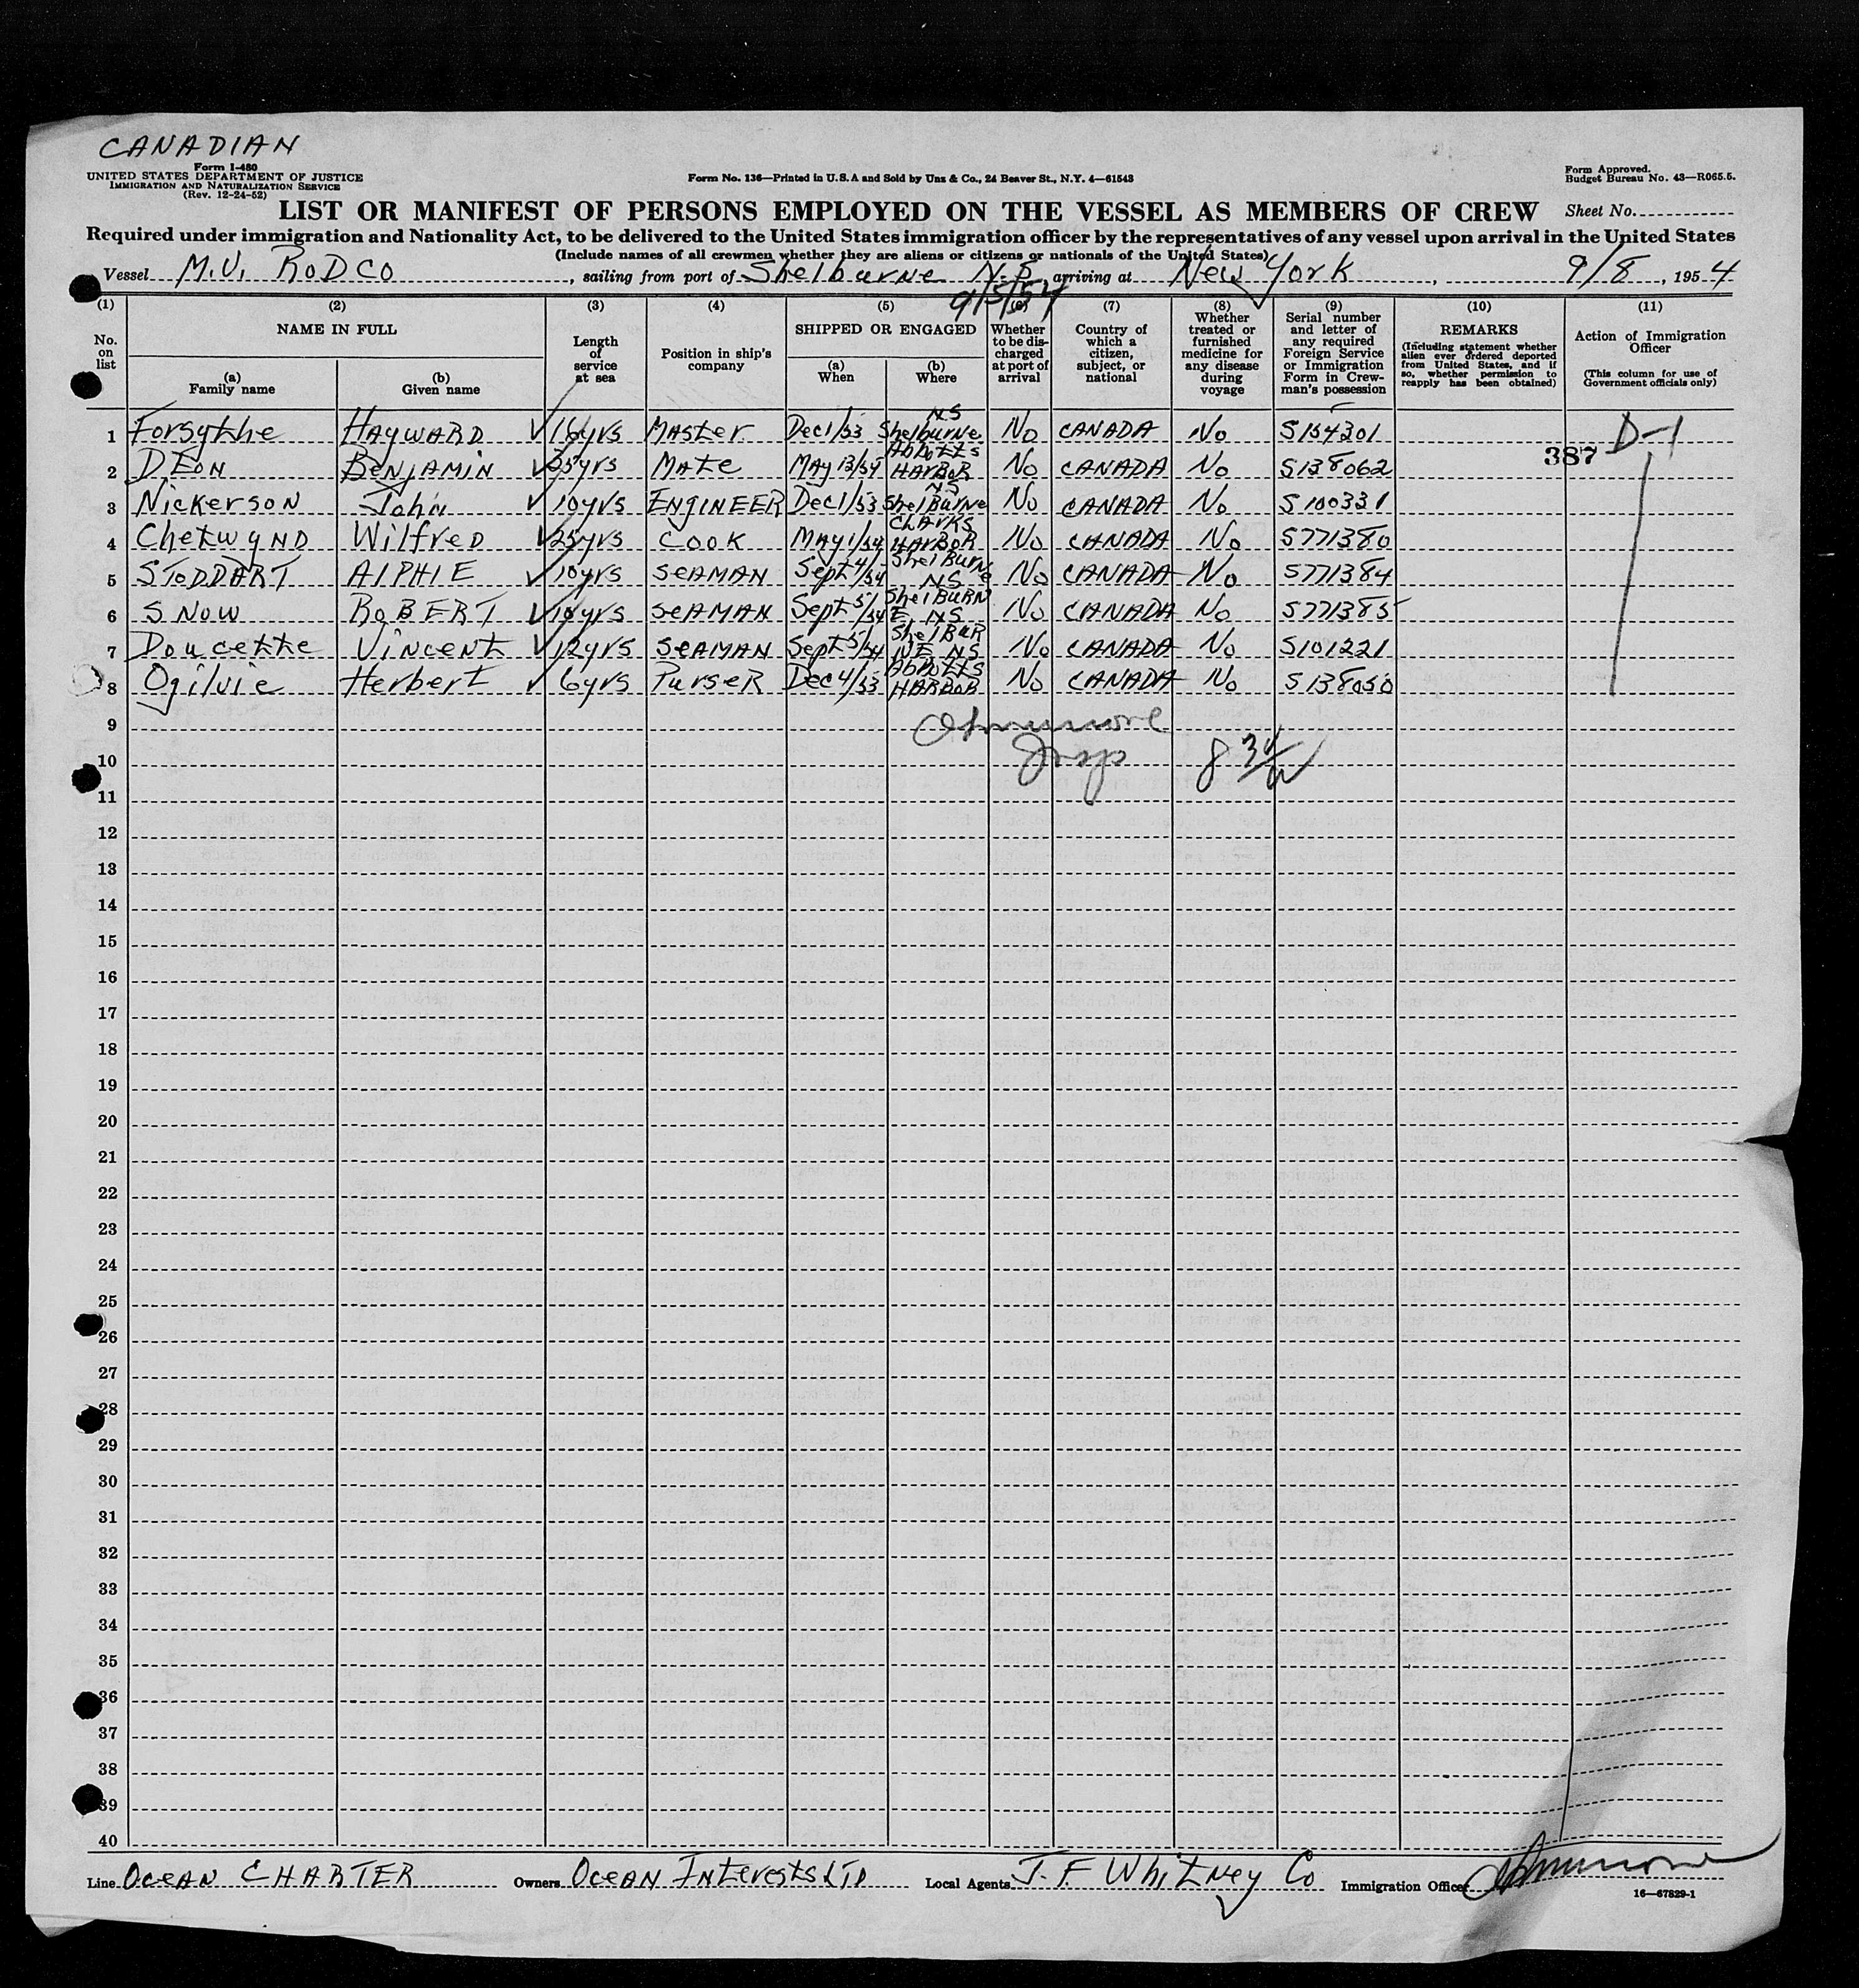 CANADIAN
Form I-480
UNITED STATES DEPARTMENT OF JUSTICE
IMMIGRATION AND NATURALIZATION SERVICE
(Rev. 12-24-52)
Form No. 136—Printed in U.S.A and Sold by Unz & Co., 24 Beaver St., N.Y. 4—61543
Form Approved.
Budget Bureau No. 43—R065.5.
LIST OR MANIFEST OF PERSONS EMPLOYED ON THE VESSEL AS MEMBERS OF CREW
Sheet No.
Required under immigration and Nationality Act, to be delivered to the United States immigration officer by the representatives of any vessel upon arrival in the United States
(Include names of all crewmen whether they are aliens or citizens or nationals of the United States)
Vessel M.V. RODCO, sailing from port of Shelburne N.S, arriving at New York, 9/8, 1954
9/5/54
(1) (2) (3) (4) (5) (6) (7) (8) (9) (10) (11)
No. on list
NAME IN FULL
(a) Family name
(b) Given name
Length of service at sea
Position in ship's company
SHIPPED OR ENGAGED
(a) When
(b) Where
Whether to be discharged at port of arrival
Country of which a citizen, subject, or national
Whether treated or furnished medicine for any disease during voyage
Serial number and letter of any required Foreign Service or Immigration Form in Crewman's possession
REMARKS
(Including statement whether alien ever ordered deported from United States, and if so, whether permission to reapply has been obtained)
Action of Immigration Officer
(This column for use of Government officials only)
1 Forsythe HAYWARD 16yrs MASTER Dec1/53 Shelburne NS No CANADA No S154301 D-1
387
2 DEON BENJAMIN 35yrs MATE MAY 13/54 Abbotts HARBOR No CANADA No S138062
3 Nickerson John 10yrs ENGINEER Dec1/53 Shelburne NS No CANADA No S100331
4 Chetwynd Wilfred 25yrs COOK MAY 1/54 CLARKS HARBOR No CANADA No S771380
5 STODDART AlPHIE 10yrs SEAMAN Sept 4/54 Shelburne NS No CANADA No S771384
6 SNOW ROBERT 10yrs SEAMAN Sept 5/54 ShelBURNE NS No CANADA No S771385
7 Doucette Vincent 12yrs SEAMAN Sept 5/54 ShelBURNE NS No CANADA No S101221
8 Ogilvie Herbert 6yrs PURSER Dec 4/53 Abbotts HARBOR No CANADA No S138050
9
10 Insp 8
11
12
13
14
15
16
17
18
19
20
21
22
23
24
25
26
27
28
29
30
31
32
33
34
35
36
37
38
39
40
Line OCEAN CHARTER Owners OCEAN INTERESTS LTD Local Agents J. F. Whitney Co Immigration Officer
16—67829-1